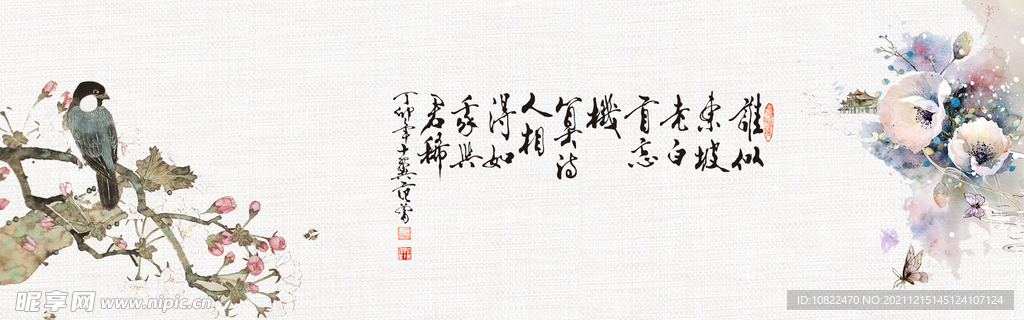 誰似
東坡
老白
首忘
機
算詩
人相
得如
我與
君稀
丁卯年十翼范曾
昵享网 www.nipic.cn
ID:10822470 NO:20211215145124107124